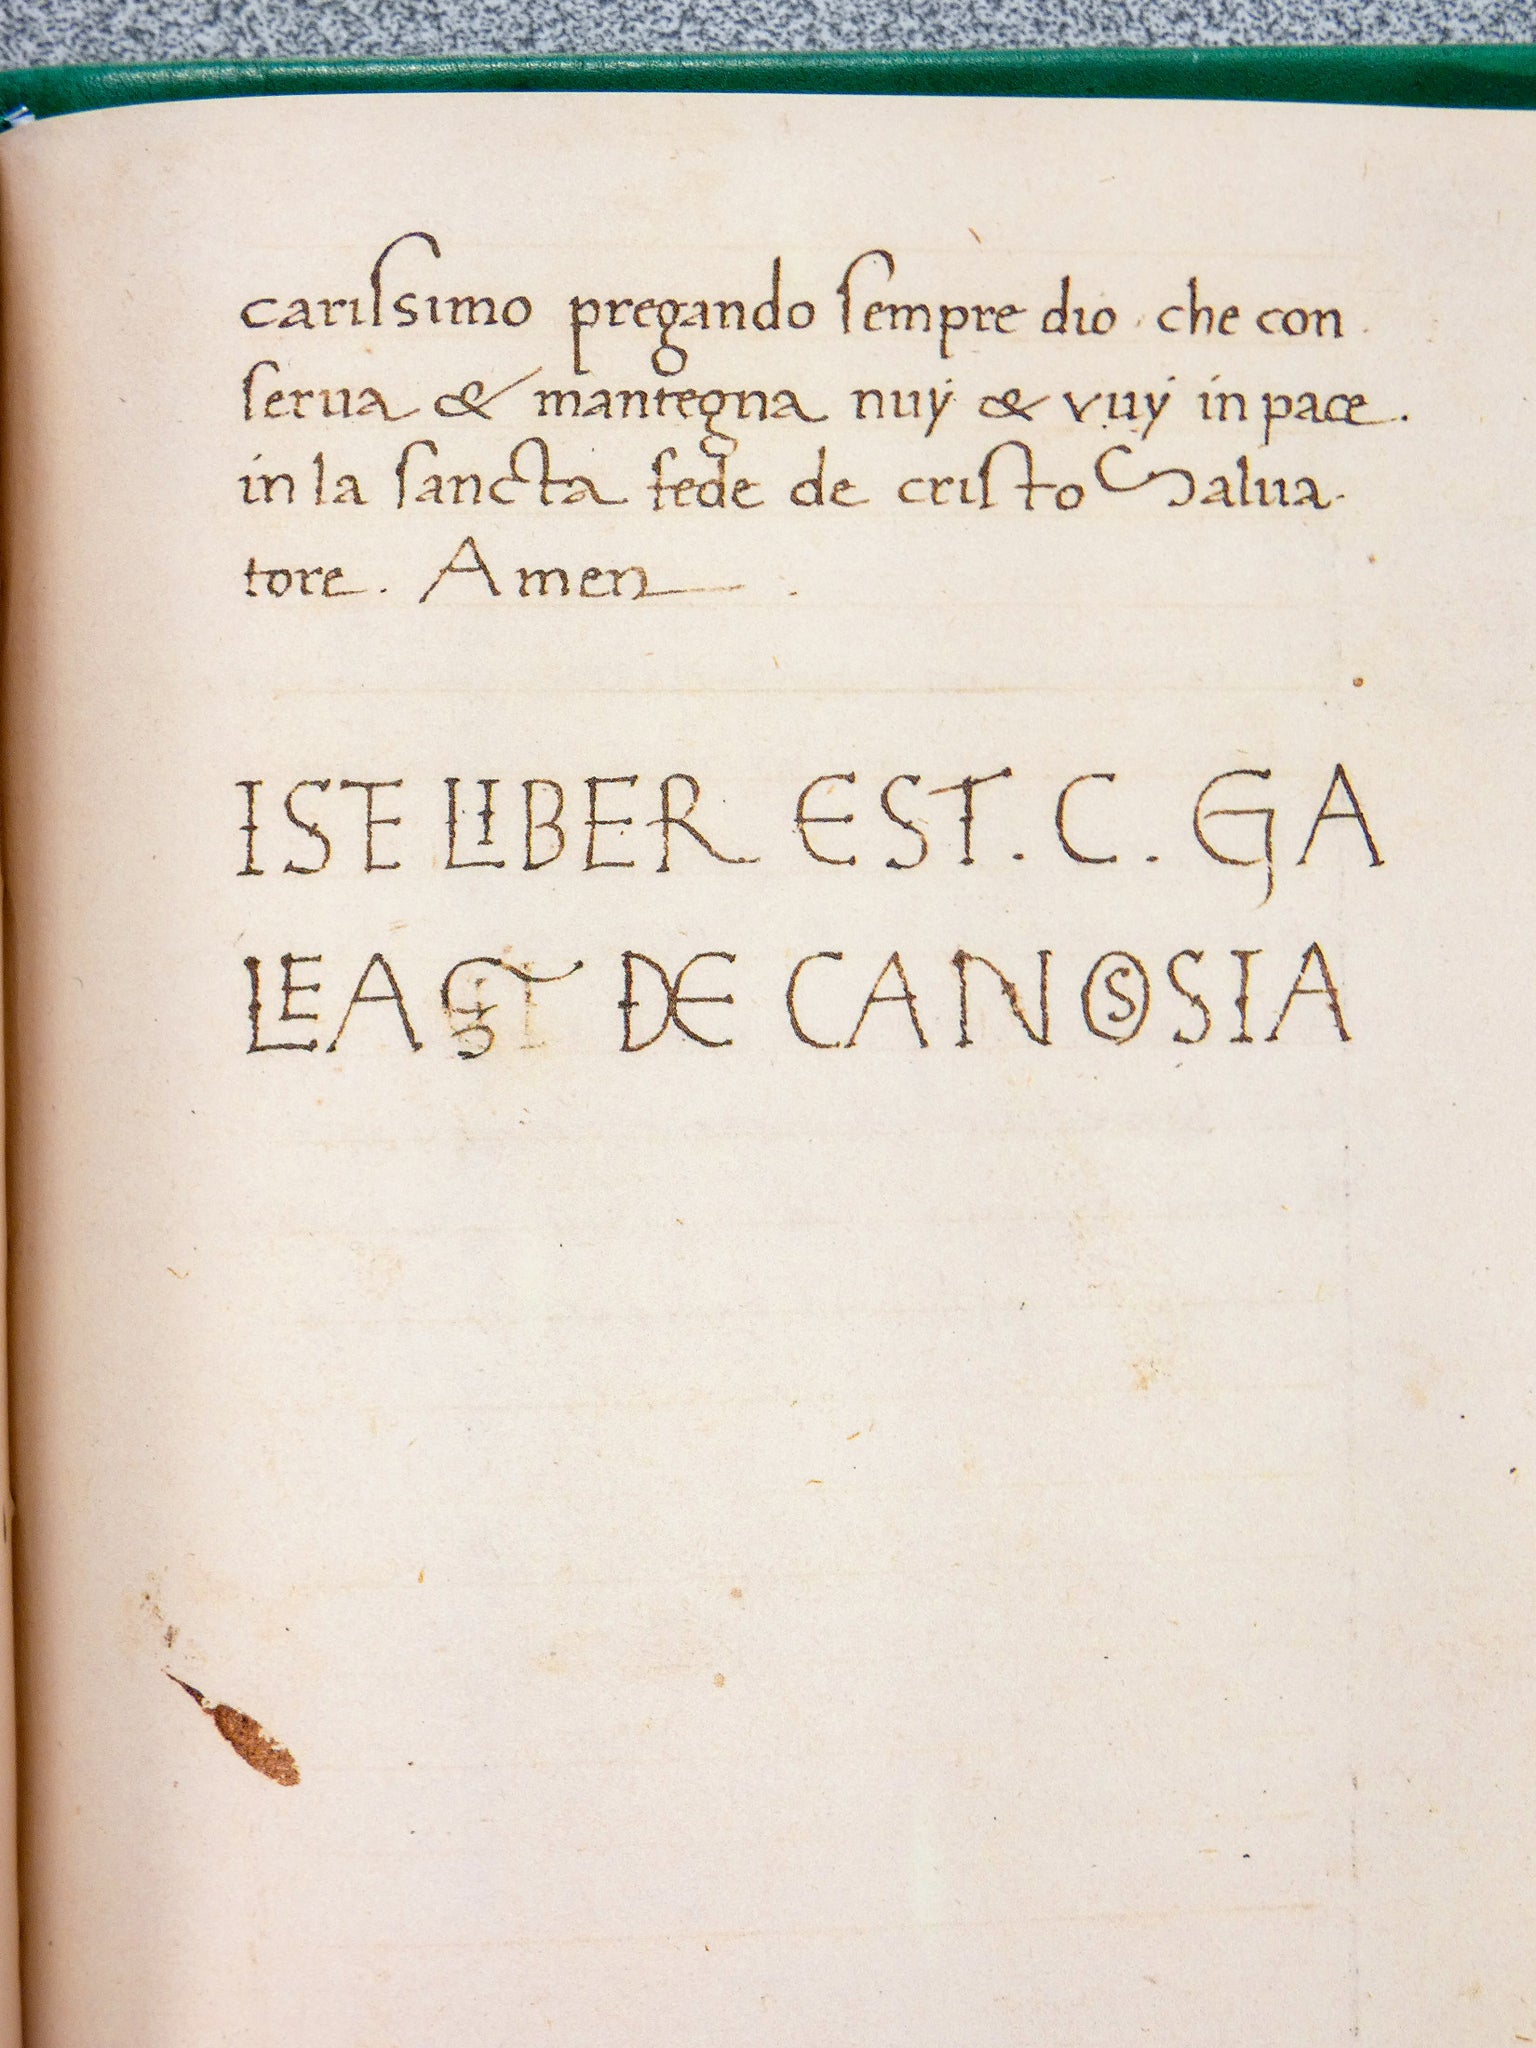 carissimo pregando sempre dio che con
serua & mantegna nuÿ & vuÿ in pace.
in la sancta fede de cristo Salua-
tore. Amen
ISTE LIBER EST. C. GA
LEA DE CANOSSIA